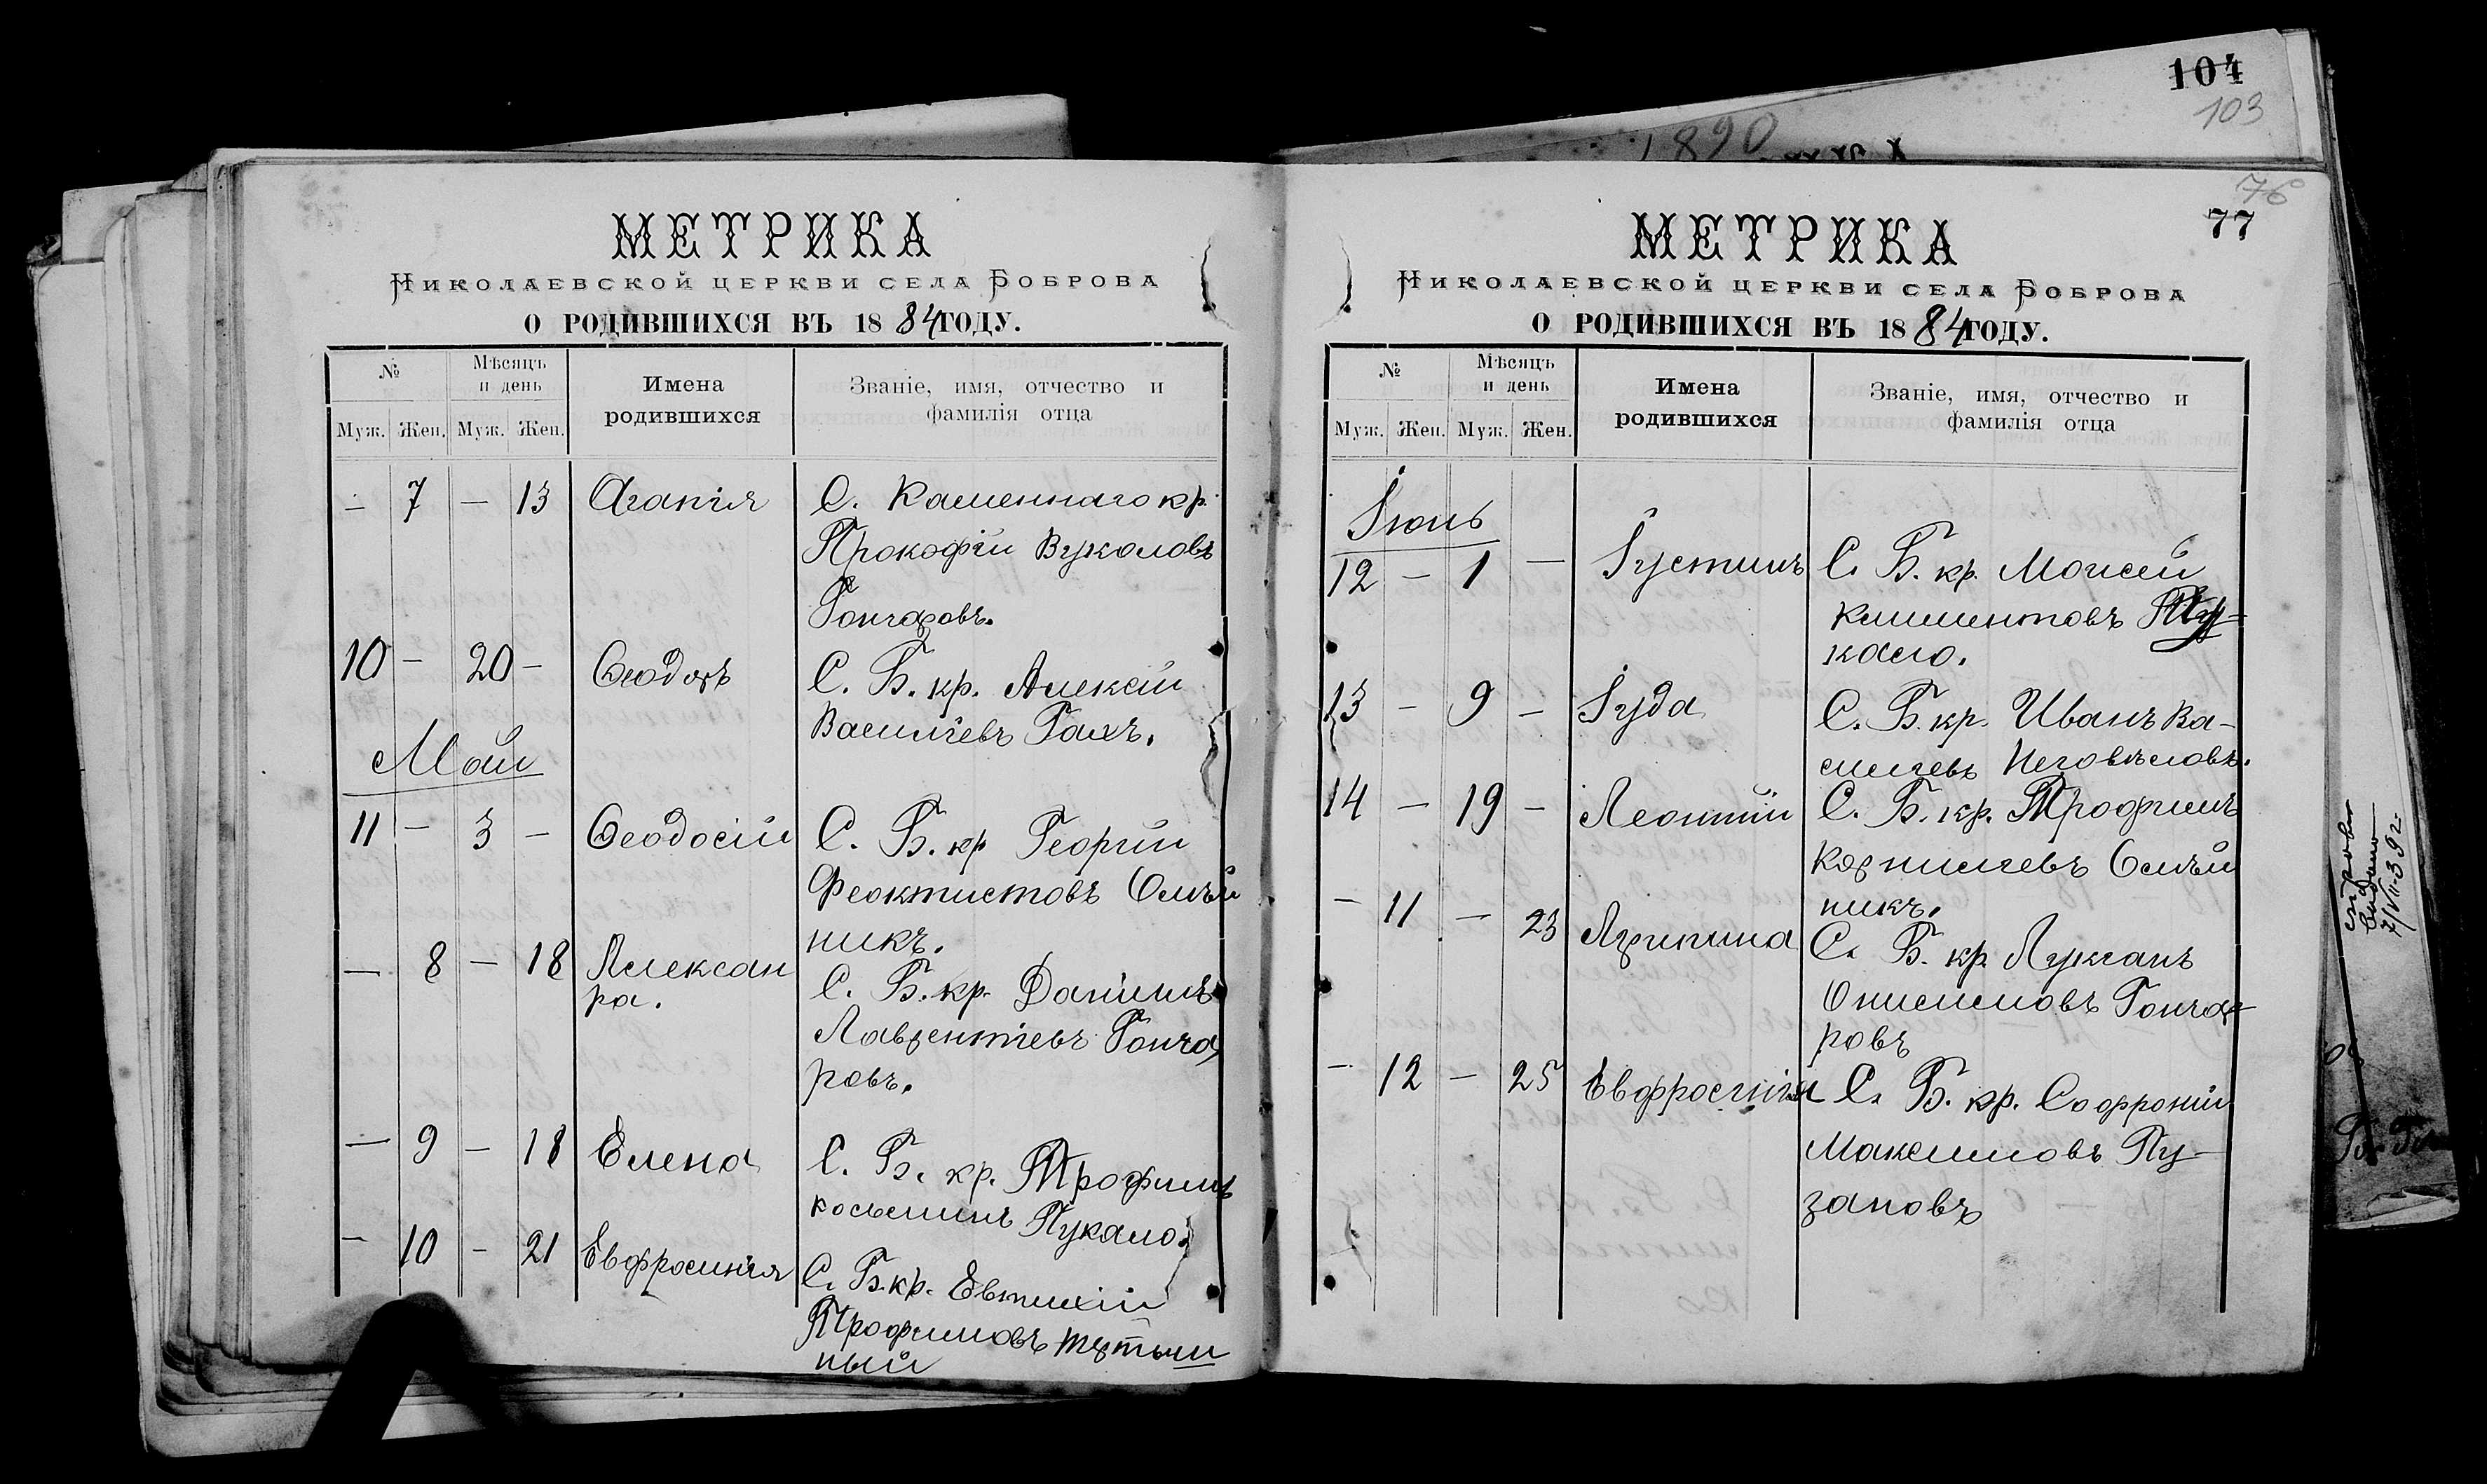 104
103
1890
МЕТРИКА
НИКОЛАЕВСКОЙ ЦЕРКВИ СЕЛА БОБРОВА
О РОДИВШИХСЯ ВЪ 1884 ГОДУ.
№
Мѣсяцъ и день
Имена родившихся
Званіе, имя, отчество и фамилія отца
Муж. Жен. Муж. Жен.
— 7 — 13 Агапія С. Каменнаго кр.
Прокофій Вуколовъ
Гончаровъ.
10 — 20 — Ѳеодоръ С. Б. кр. Алексій
Васильевъ Галъ.
Май
11 — 3 — Ѳеодосій С. Б. кр Георгій
Феоктистовъ Олѣй
никъ.
— 8 — 18 Алексан С. Б. кр. Даніилъ
ра. Лаврентіевъ Гонча
ровъ.
— 9 — 18 Елена С. Б. кр. Трофимъ
Косьминъ Пукало.
— 10 — 21 Евфросинія С. Б. кр. Евтихій
Трофимовъ
ный
76
77
МЕТРИКА
НИКОЛАЕВСКОЙ ЦЕРКВИ СЕЛА БОБРОВА
О РОДИВШИХСЯ ВЪ 1884 ГОДУ.
№
Мѣсяцъ и день
Имена родившихся
Званіе, имя, отчество и фамилія отца
Муж. Жен. Муж. Жен.
Іюнь
12 — 1 — Іустинъ С. Б. кр. Моисей
Климентовъ Пу-
кало.
13 — 9 — Іуда С. Б. кр. Иванъ Ва-
сильевъ Неговѣловъ.
14 — 19 — Леонтій С. Б. кр. Трофимъ
Корнильевъ Олѣй
никъ.
— 11 — 23 Агрипина С. Б. кр Лукіанъ
Онисимовъ Гонча-
ровъ
— 12 — 25 Евфросинія С. Б. кр. Софроній
Максимовъ Пу-
зановъ